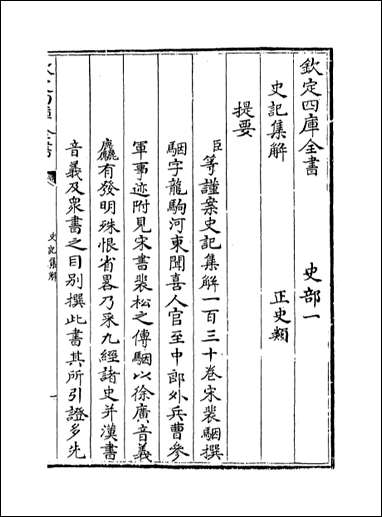 欽定四庫全書　史部一
史記集解　正史類
提要
臣等謹案史記集解一百三十卷宋裴駰撰
駰字龍駒河東聞喜人官至中郎外兵曹參
軍事迹附見宋書裴松之傳駰以徐廣音義
麤有發明殊恨省畧乃采九經諸史并漢書
音義及衆書之目別撰此書其所引證多先
史記集解